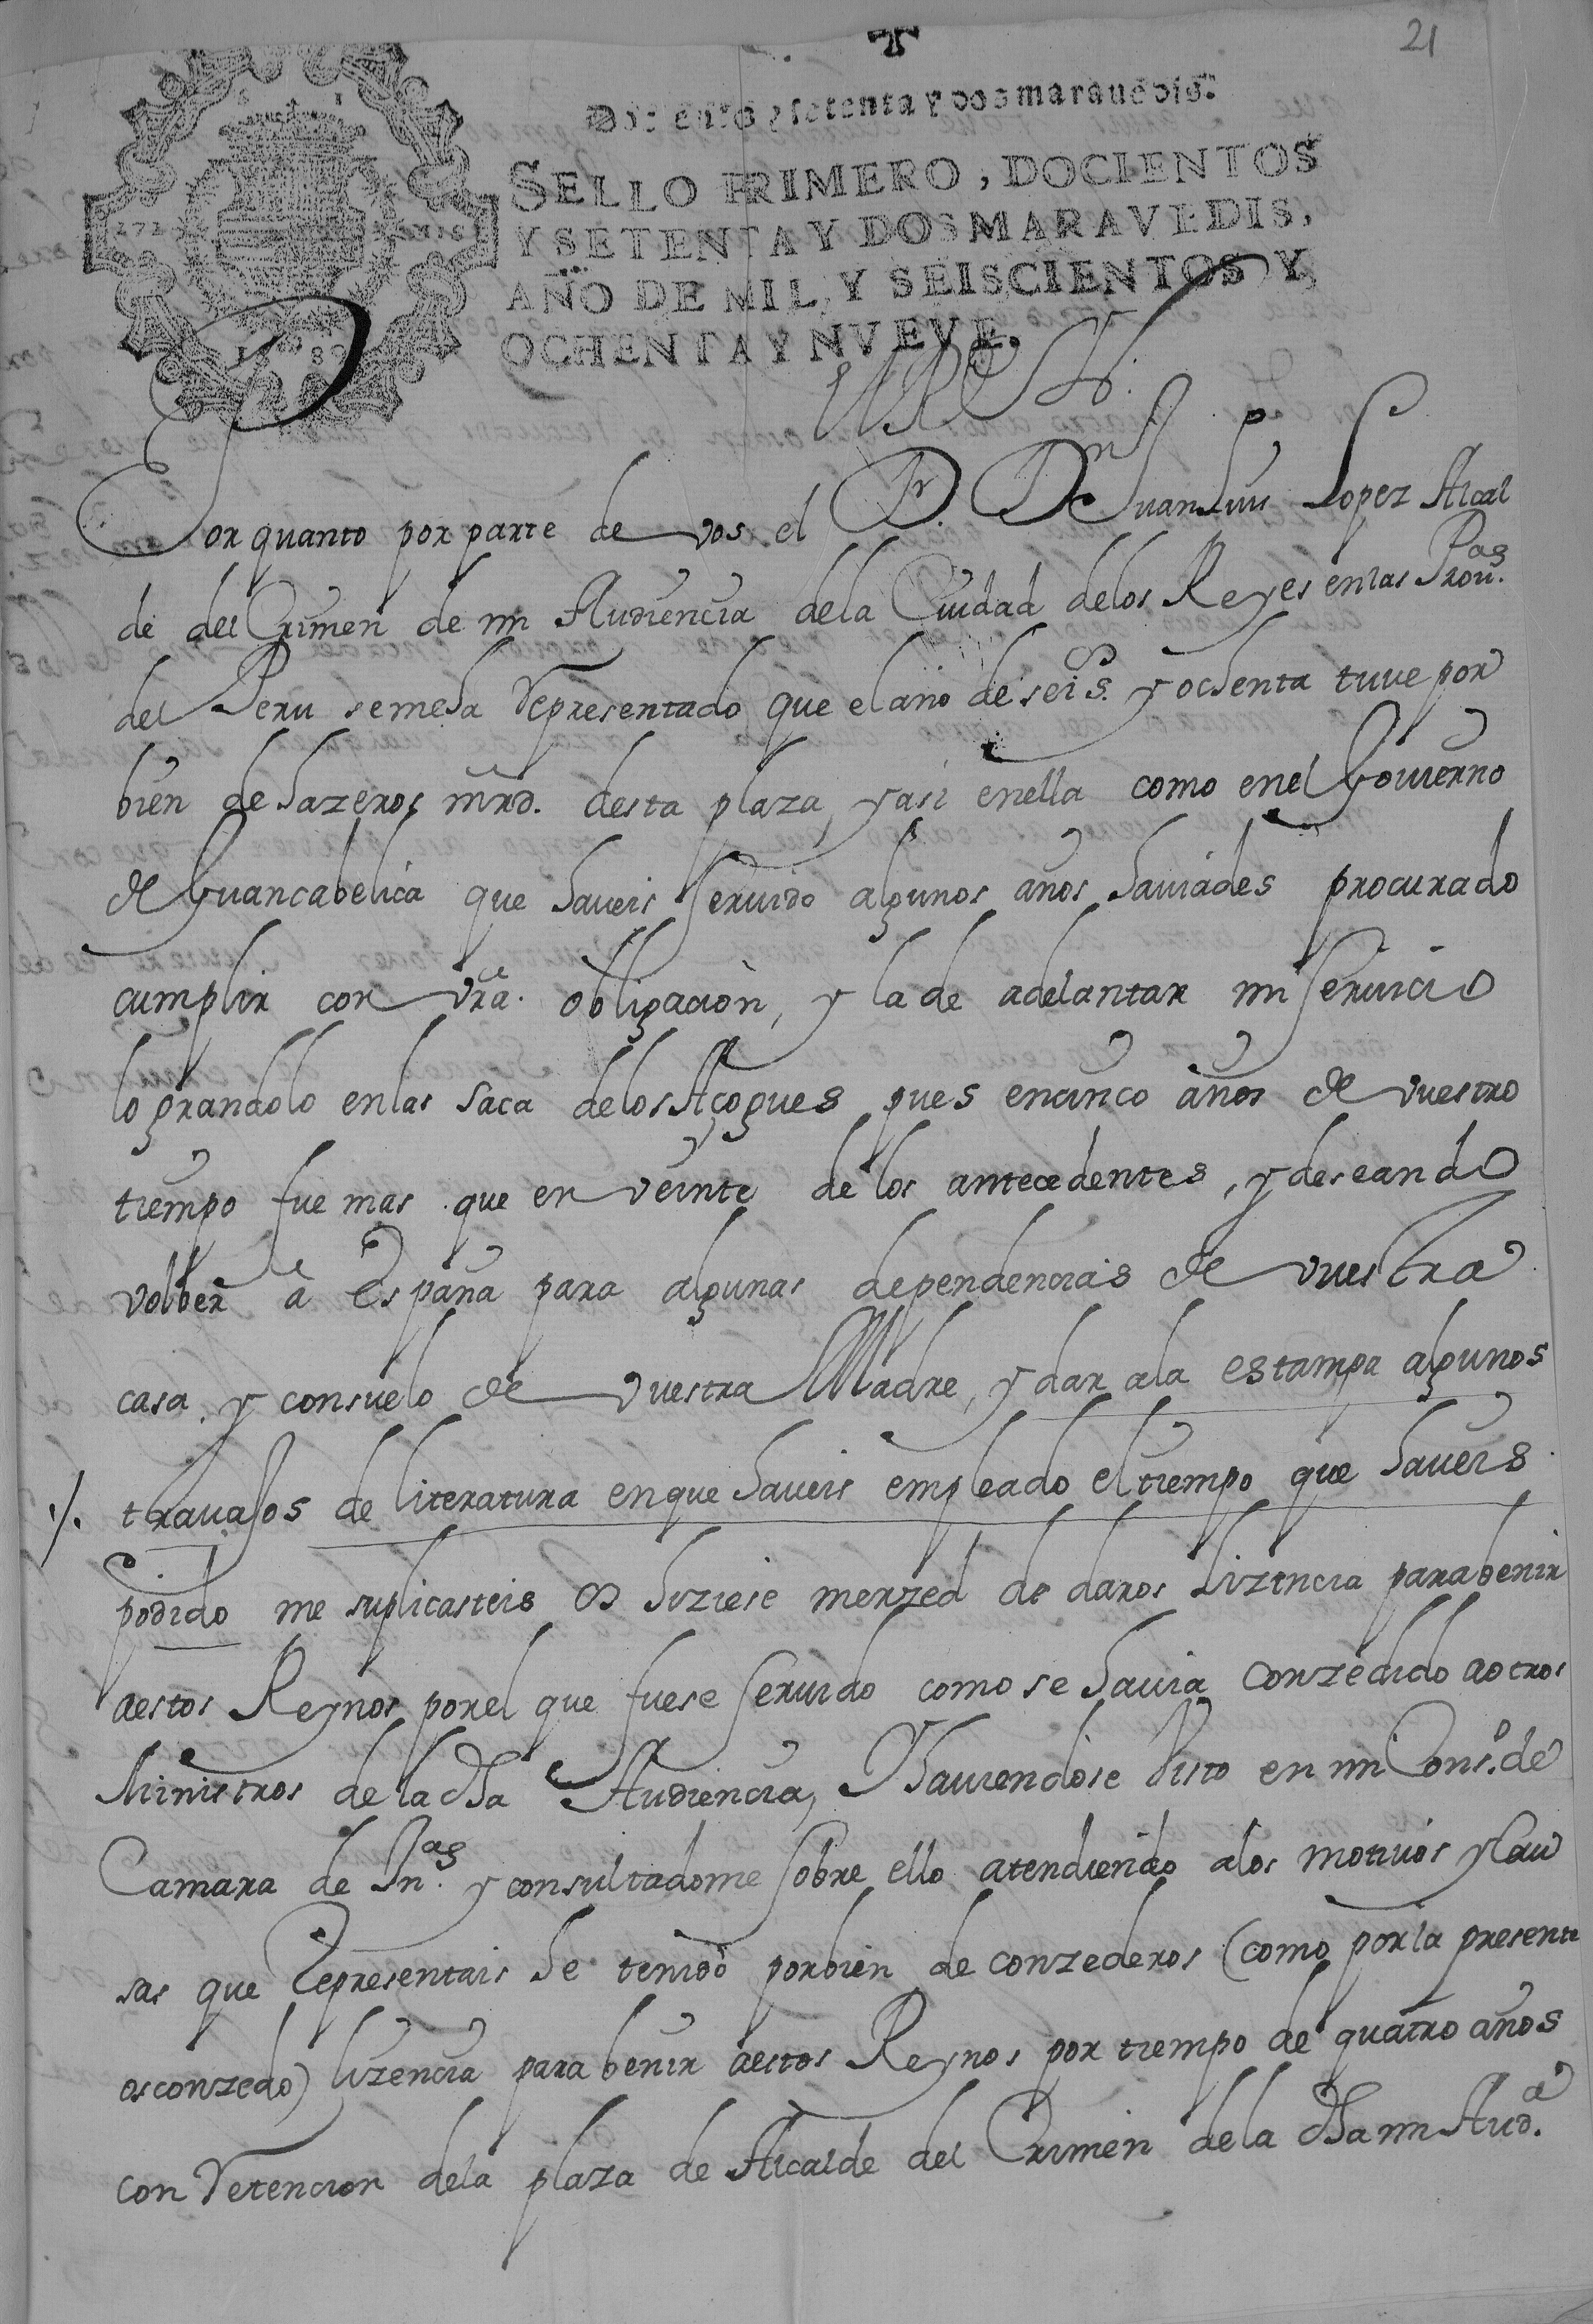 21
Docientos y setenta y dos maravedis.
SELLO PRIMERO, DOCIENTOS
Y SETENTA Y DOS MARAVEDIS,
AÑO DE MIL, Y SEISCIENTOS Y
OCHENTA Y NVEVE.
El Rey
Por quanto por parte de vos el D.r D.n Juan Luis Lopez Alcal
de del Crimen de mi Audiencia de la Ciudad de los Reyes en las Prou.as
del Peru se me ha Representado que el año de seis.os y ochenta tuve por
bien de hazeros mrd. desta plaza, y asi en ella como en el Govierno
de Guancabelica que haveis servido algunos años haviades procurado
cumplir con vra. obligacion, y la de adelantar mi servicio
lograndolo en las saca de los Açogues pues en cinco años de vuestro
tiempo fue mas que en veinte de los antecedentes, y deseando
volber a España para algunas dependencias de vuestra
casa, y consuelo de vuestra Madre, y dar a la estampa algunos
./. travajos de literatura en que haveis empleado el tiempo que haveis
podido me suplicasteis os hiziese merzed de daros lizencia para benir
a estos Reynos por el que fuese servido como se havia conzedido a otros
Ministros de la dha Audiencia, Y haviendose visto en mi Cons.o de
Camara de Yn.as y consultadome sobre ello atendiendo a los motivos y cau
sas que Representais he tenido por bien de conzederos (como por la presente
os conzedo) lizencia para benir a estos Reynos por tiempo de quatro años
con Retencion de la plaza de Alcalde del Crimen de la dha mi Aud.a